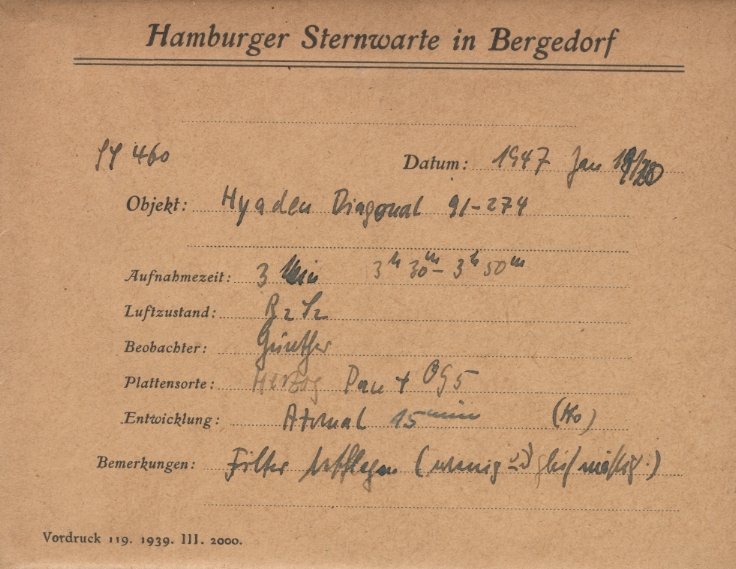 Hamburger Sternwarte in Bergedorf
460 Datum: 1947 Jan 19/20
Objekt: Hyaden Diagonal 91-274
Aufnahmezeit: 3 Min 3h 30m - 3h 50m
Luftzustand:
Beobachter: Günther
Plattensorte: Herzog Pan + OG5
Entwicklung: Atomal 15 min (Ko)
Bemerkungen: Filter (wenig
Vordruck 119. 1939. III. 2000.